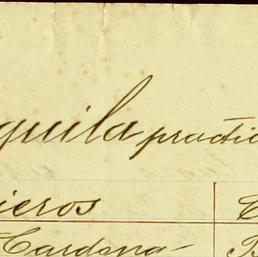 guila practic
ieros
Cardona